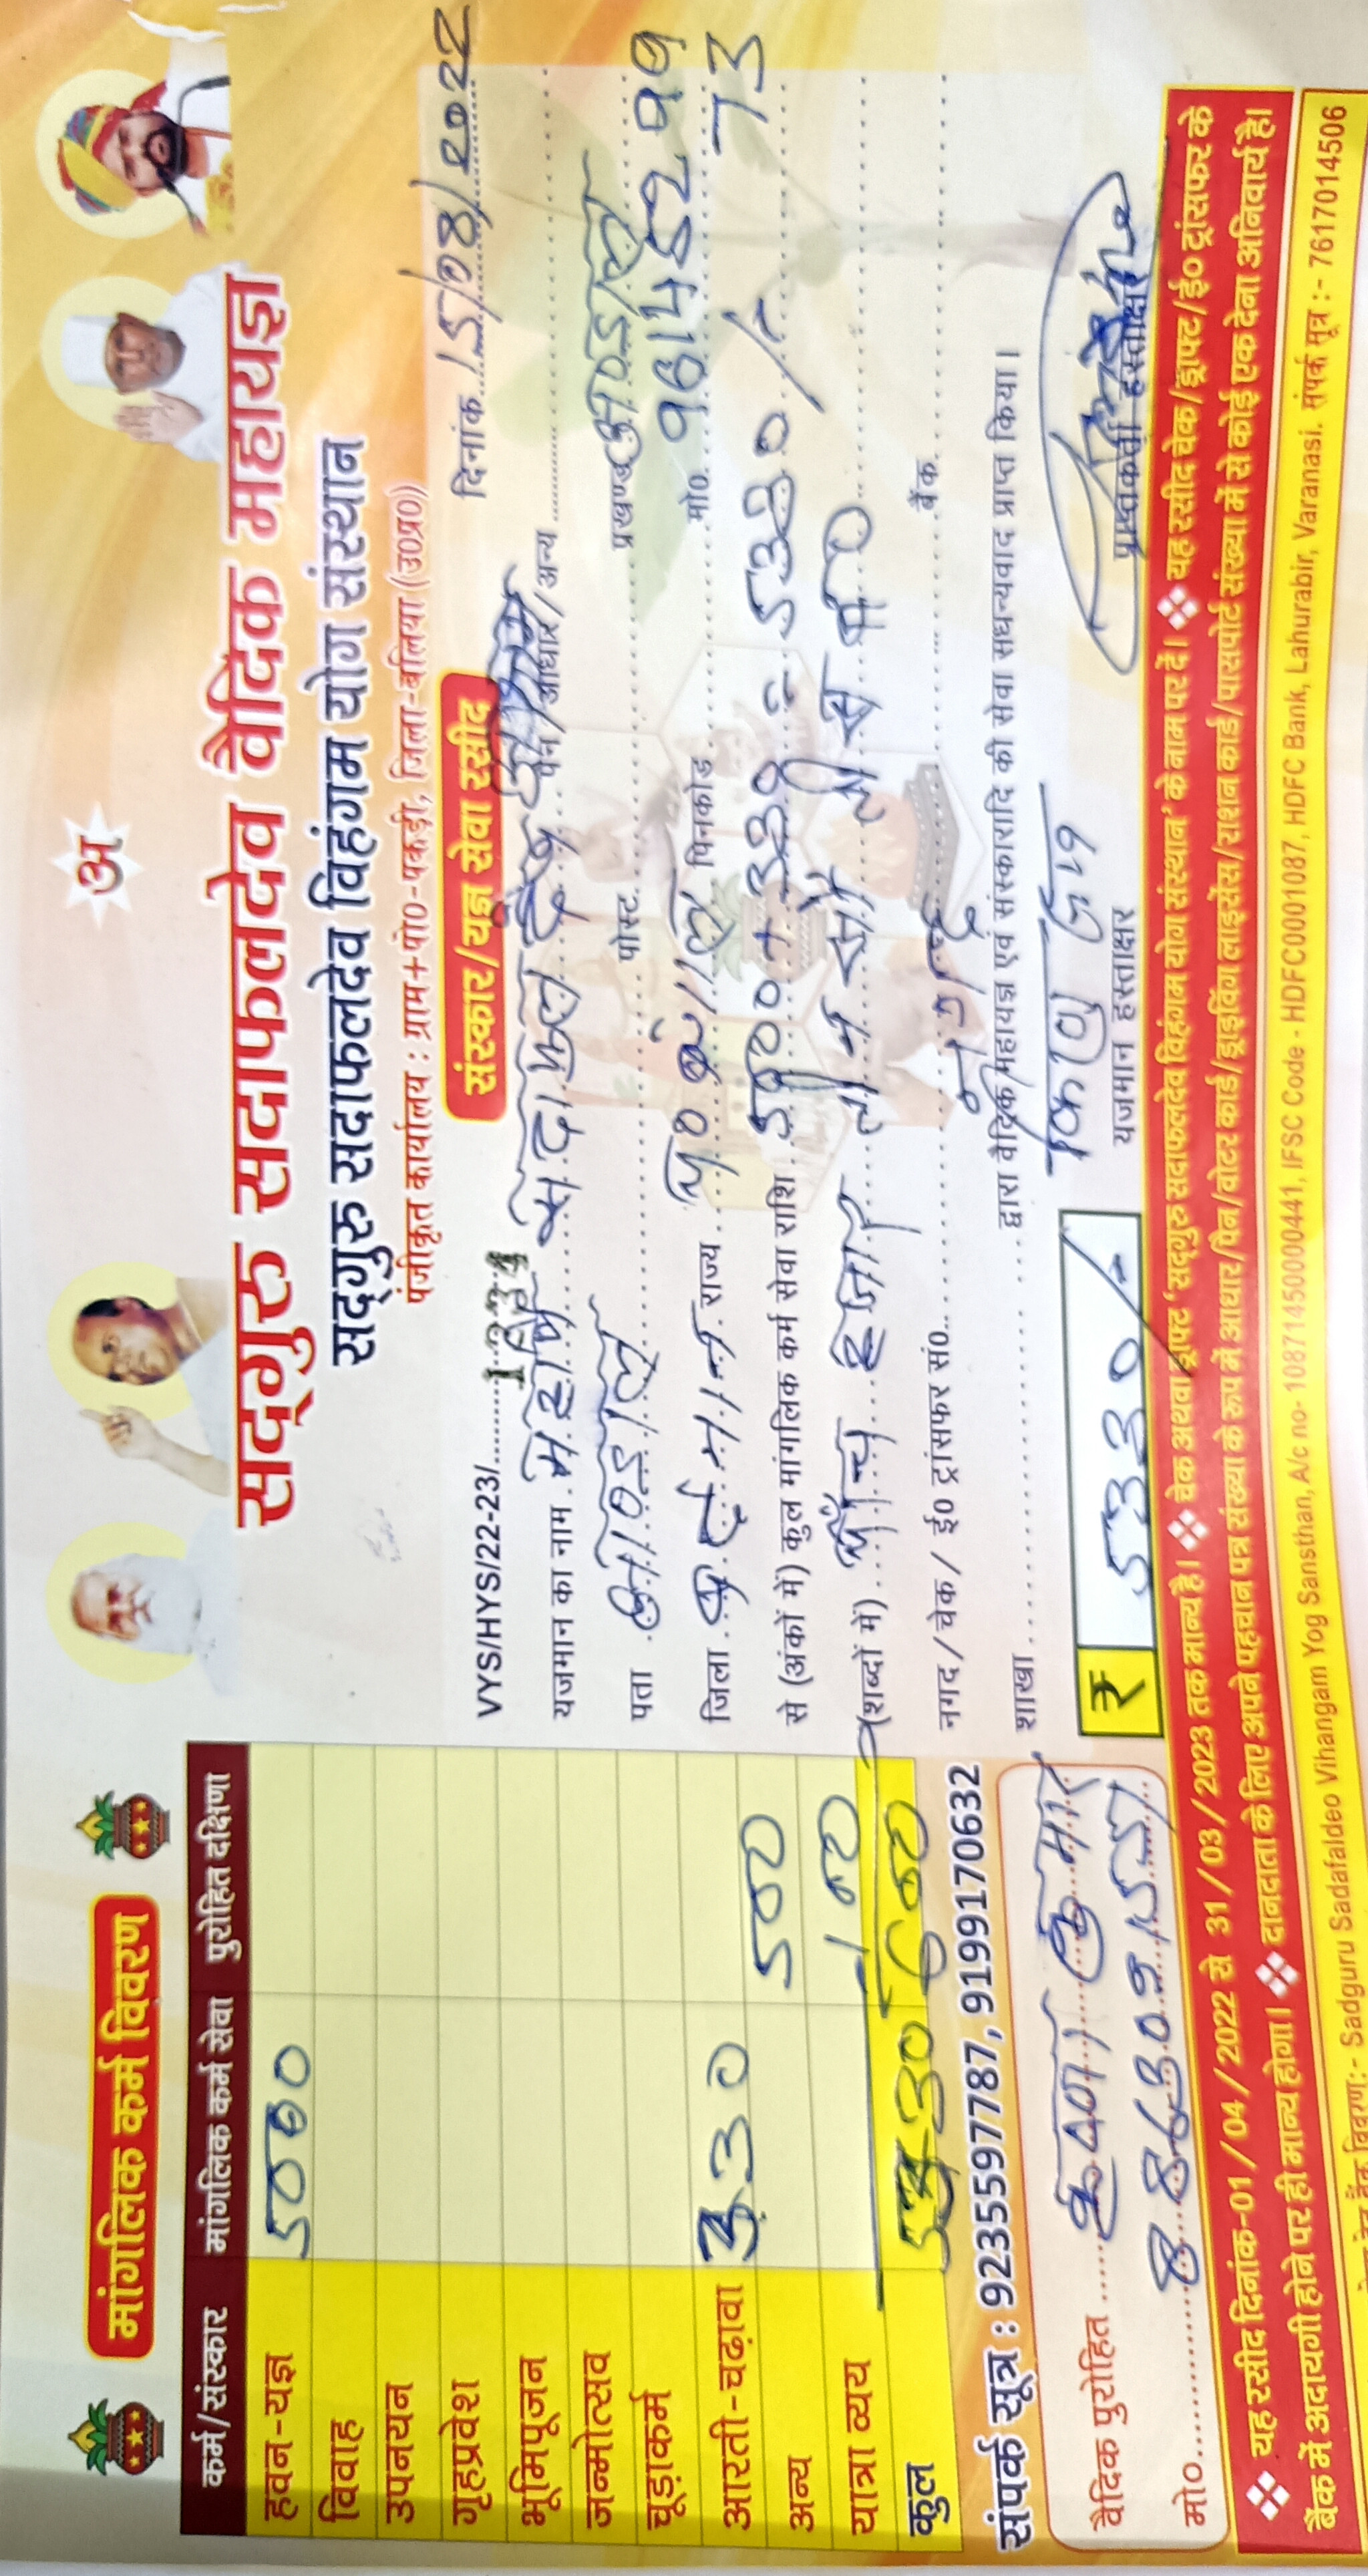 अ
मांगलिक कर्म विवरण
कर्म/संस्कार मांगलिक कर्म सेवा पुरोहित दक्षिणा
हवन-यज्ञ 5000
विवाह
उपनयन
गृहप्रवेश
भूमिपूजन
जन्मोत्सव
चूड़ाकर्म
आरती-चढ़ावा 330
अन्य 500
यात्रा व्यय 100
कुल 5330 600
संपर्क सूत्र : 9235597787, 9199170632
वैदिक पुरोहित कुमार
मो०
सद्गुरु सदाफलदेव वैदिक महायज्ञ
सद्गुरु सदाफलदेव विहंगम योग संस्थान
पंजीकृत कार्यालय : ग्राम+पो०-पकड़ी, जिला-बलिया (उ०प्र०)
संस्कार/यज्ञ सेवा रसीद
VYS/HYS/22-23/ दिनांक 15/08/2022
यजमान का नाम महर्षि सदाफल देव पैन/आधार/अन्य
पता पोस्ट प्रखण्ड
जिला राज्य पिनकोड मो०
73
से (अंकों में) कुल मांगलिक कर्म सेवा राशि 5000+330 = 5330/-
(शब्दों में) पाँच हजार तीन सौ तीस मा०
नगद/चेक/ ई० ट्रांसफर सं० बैंक
शाखा द्वारा वैदिक महायज्ञ एवं संस्कारादि की सेवा सधन्यवाद प्राप्त किया।
₹ 5330/-
यजमान हस्ताक्षर
प्राप्तकर्ता हस्ताक्षर
❖ यह रसीद दिनांक-01/04/2022 से 31/03/2023 तक मान्य है। ❖ चेक अथवा ड्राफ्ट 'सद्गुरु सदाफलदेव विहंगम योग संस्थान' के नाम पर दें। ❖ यह रसीद चेक/ड्राफ्ट/ई० ट्रांसफर के
बैंक में अदायगी होने पर ही मान्य होगा। ❖ दानदाता के लिए अपने पहचान पत्र संख्या के रूप में आधार/पैन/वोटर कार्ड/ड्राइविंग लाइसेंस/राशन कार्ड/पासपोर्ट संख्या में से कोई एक देना अनिवार्य है।
बैंक विवरण:- Sadguru Sadafaldeo Vihangam Yog Sansthan, A/c no- 10871450000441, IFSC Code - HDFC0001087, HDFC Bank, Lahurabir, Varanasi. संपर्क सूत्र :- 7617014506